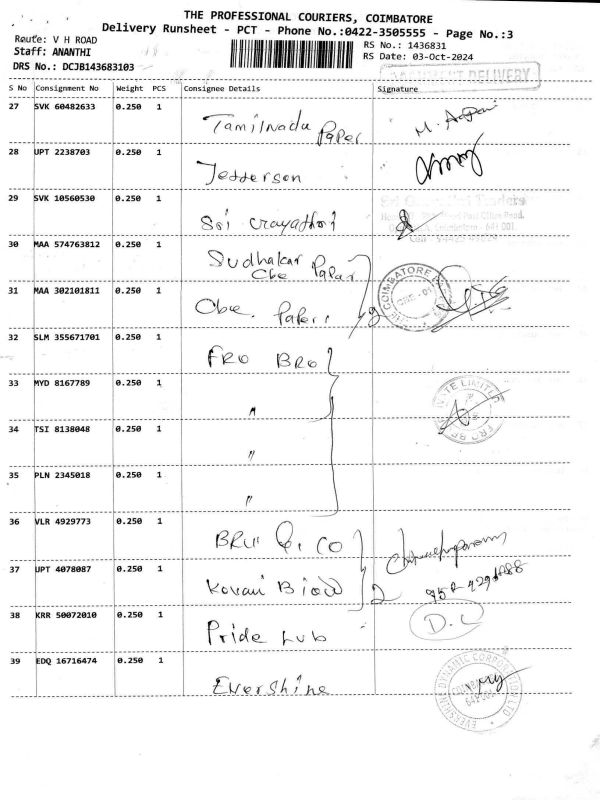 THE PROFESSIONAL COURIERS, COIMBATORE
Delivery Runsheet - PCT - Phone No.:0422-3505555 - Page No.:3
Route: V H ROAD
RS No.: 1436831
Staff: ANANTHI
RS Date: 03-Oct-2024
DRS No.: DCJB143683103
DELIVERY
S No Consignment No Weight PCS Consignee Details Signature
27 SVK 60482633 0.250 1
Tamilnadu Paper
28 UPT 2238703 0.250 1
Jefferson
29 SVK 10560530 0.250 1
Sri
30 MAA 574763812 0.250 1
Sudhakar
Cbe Papar
31 MAA 302101811 0.250 1
Cbe. Papers
32 SLM 355671701 0.250 1
FRO BRO
33 MYD 8167789 0.250 1
"
34 TSI 8138048 0.250 1
"
35 PLN 2345018 0.250 1
"
36 VLR 4929773 0.250 1
BRU & CO
37 UPT 4078087 0.250 1
Kovai
2
38 KRR 50072010 0.250 1
D.L
Pride Lub
39 EDQ 16716474 0.250 1
Evershine